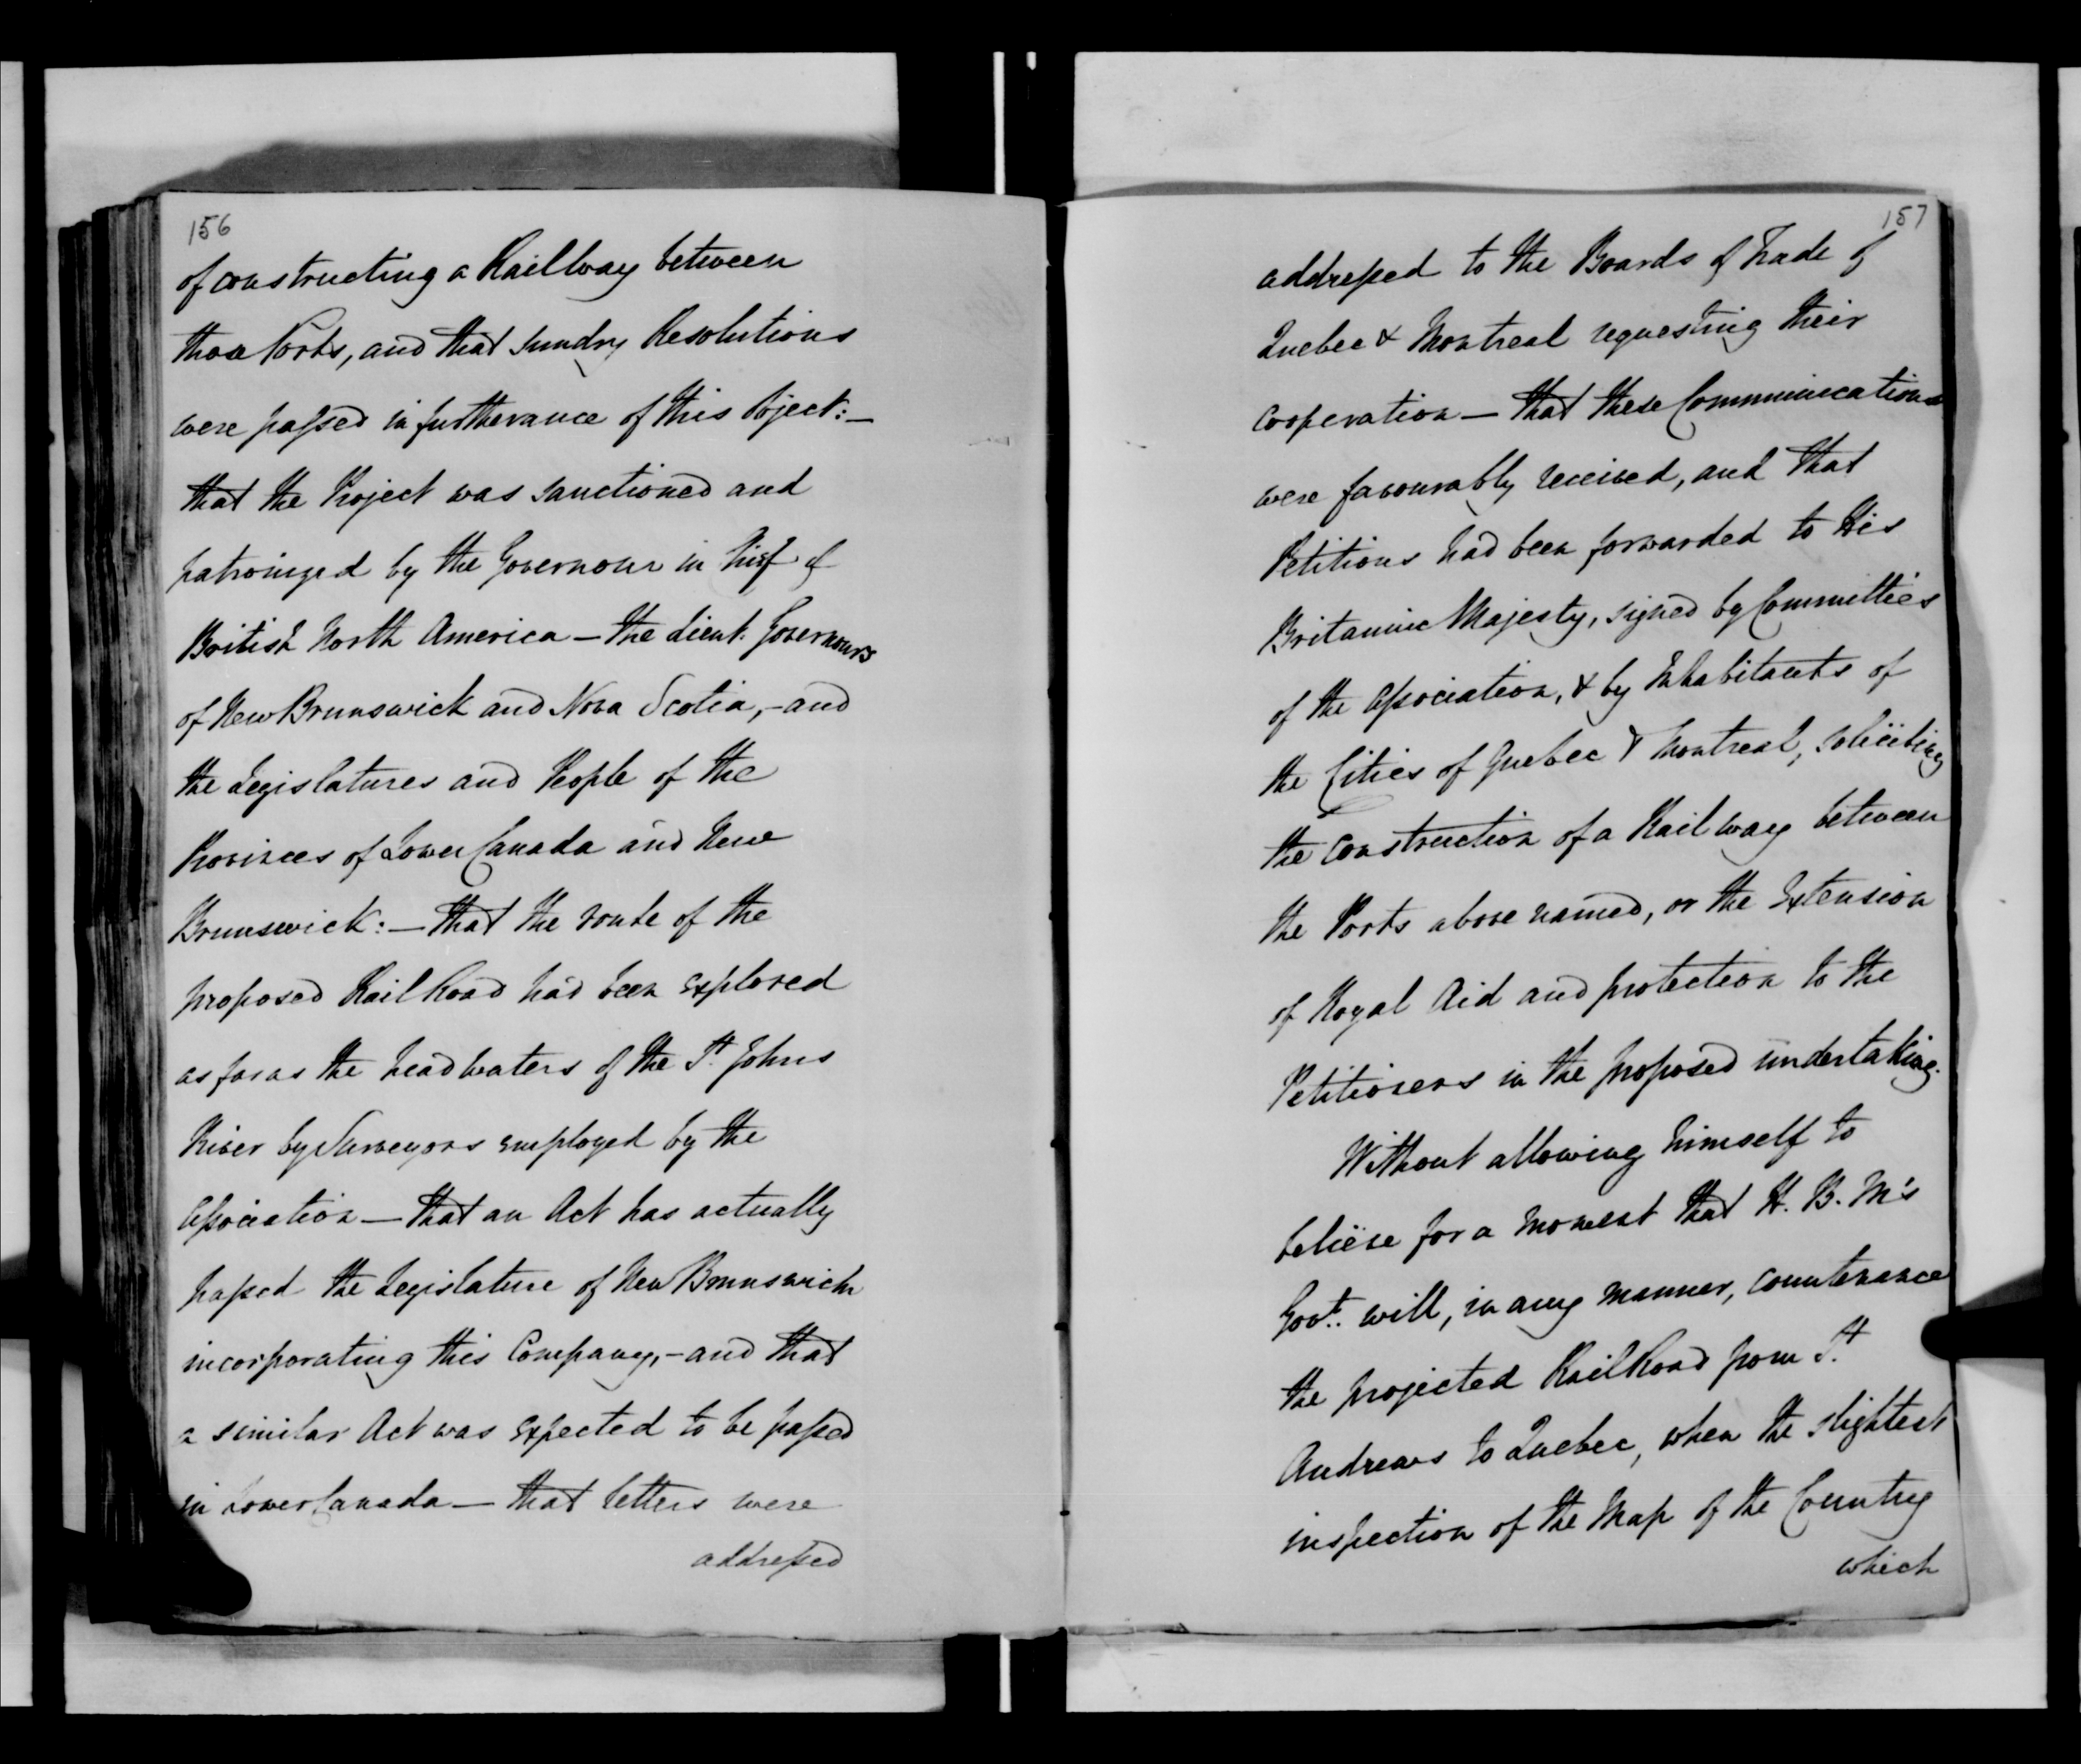 156
of constructing a Railway between
those Ports, and that sundry Resolutions
were passed in furtherance of this Object:—
that the Project was sanctioned and
patronized by the Governour in Chief of
British North America — the Lieut. Governours
of New Brunswick and Nova Scotia, - and
the Legislatures and People of the
Provinces of Lower Canada and New
Brunswick: — that the route of the
proposed Rail Road had been explored
as far as the headwaters of the St. Johns
River by Surveyors employed by the
Association — that an Act has actually
passed the Legislature of New Brunswick
incorporating this Company, - and that
a similar Act was expected to be passed
in Lower Canada — that letters were
addressed
157
addressed to the Boards of Trade of
Quebec & Montreal requesting their
cooperation — that these Communications
were favourably received, and that
Petitions had been forwarded to His
Britannic Majesty, signed by Committees
of the Association, & by Inhabitants of
the Cities of Quebec & Montreal, soliciting
the construction of a Rail way between
the Ports above named, or the Extension
of Royal Aid and protection to the
Petitioners in the proposed undertaking.
Without allowing himself to
believe for a moment that H. B. M's
Govt. will, in any manner, countenance
the projected Rail Road from St.
Andrews to Quebec, when the slightest
inspection of the Map of the Country
which